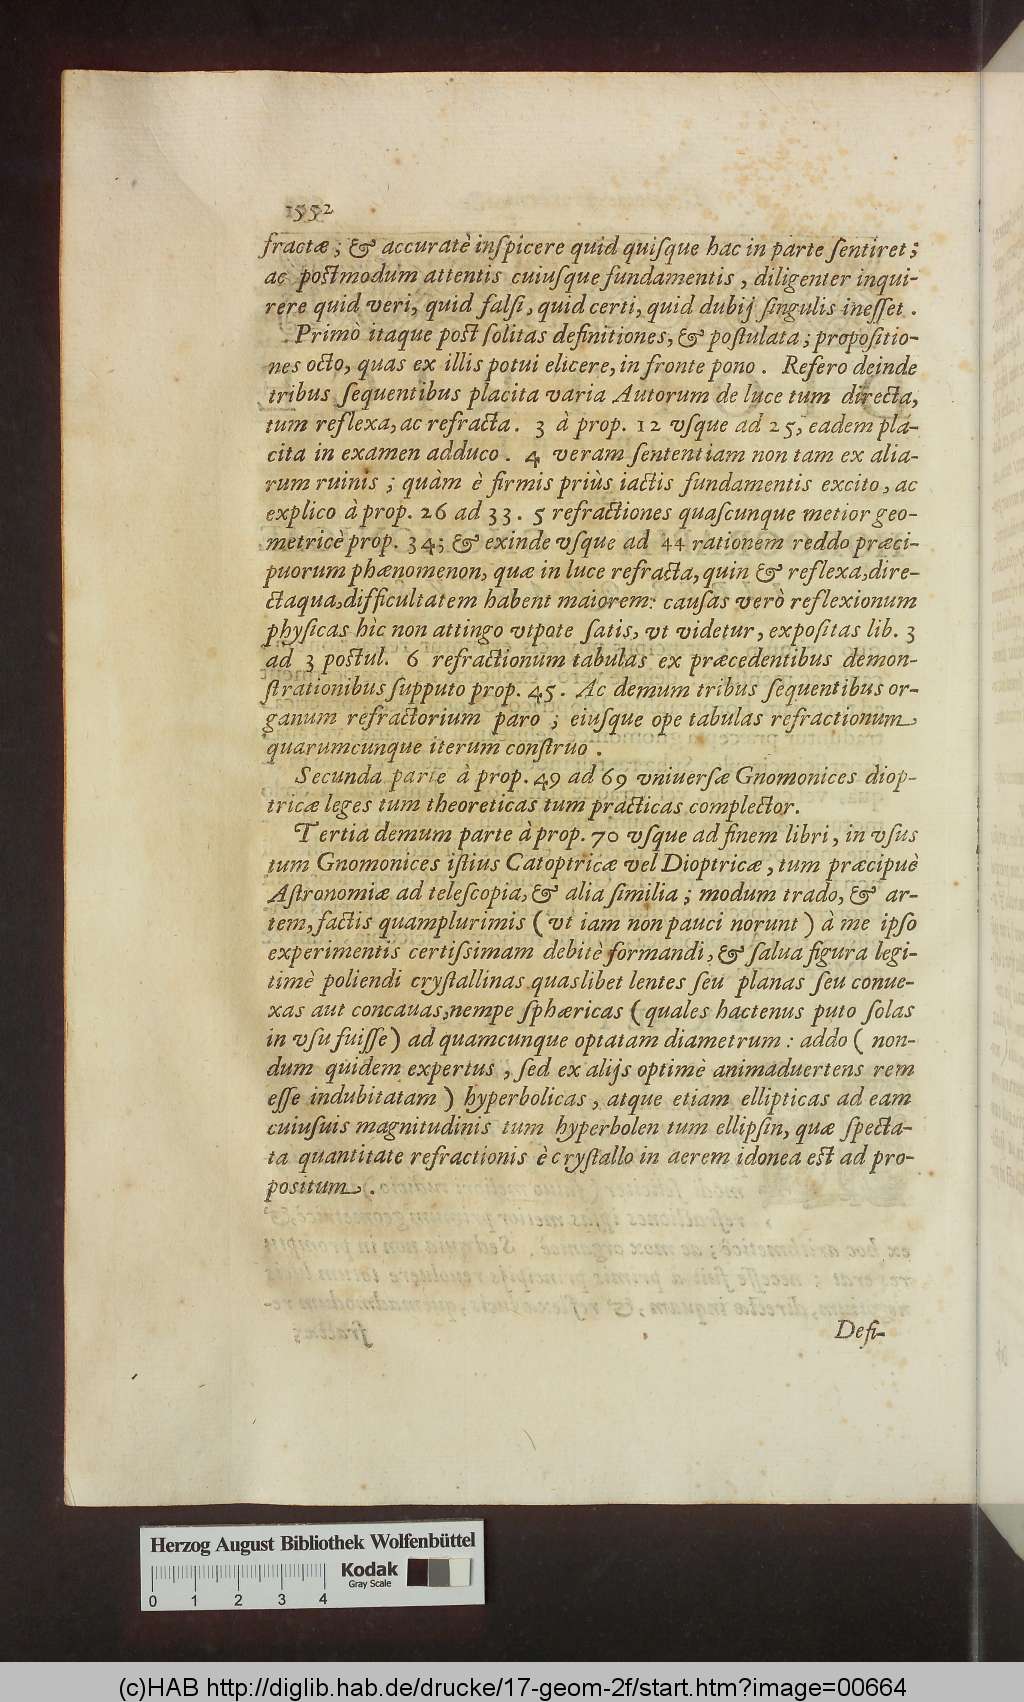 1552
fractæ; & accuratè inſpicere quid quiſque hac in parte ſentiret;
ac poſtmodum attentis cuiuſque fundamentis, diligenter inqui-
rere quid veri, quid falſi, quid certi, quid dubij ſingulis ineſſet.
Primò itaque poſt ſolitas definitiones, & poſtulata; propoſitio-
nes octo, quas ex illis potui elicere, in fronte pono. Refero deinde
tribus ſequentibus placita varia Autorum de luce tum directa,
tum reflexa, ac refracta. 3 à prop. 12 vſque ad 25, eadem pla-
cita in examen adduco. 4 veram ſententiam non tam ex alia-
rum ruinis; quàm è firmis priùs iactis fundamentis excito, ac
explico à prop. 26 ad 33. 5 refractiones quaſcunque metior geo-
metricè prop. 34; & exinde vſque ad 44 rationem reddo præci-
puorum phænomenon, quæ in luce refracta, quin & reflexa, dire-
ctaqua, difficultatem habent maiorem: cauſas verò reflexionum
phyſicas hìc non attingo vtpote ſatis, vt videtur, expoſitas lib. 3
ad 3 poſtul. 6 refractionum tabulas ex præcedentibus demon-
ſtrationibus ſupputo prop. 45. Ac demum tribus ſequentibus or-
ganum refractorium paro; eiuſque ope tabulas refractionum
quarumcunque iterum conſtruo.
Secunda parte à prop. 49 ad 69 vniuerſæ Gnomonices diop-
tricæ leges tum theoreticas tum practicas complector.
Tertia demum parte à prop. 70 vſque ad finem libri, in vſus
tum Gnomonices iſtius Catoptricæ vel Dioptricæ, tum præcipuè
Aſtronomiæ ad teleſcopia, & alia ſimilia; modum trado, & ar-
tem, factis quamplurimis (vt iam non pauci norunt) à me ipſo
experimentis certiſſimam debitè formandi, & ſalua figura legi-
timè poliendi cryſtallinas quaslibet lentes ſeu planas ſeu conue-
xas aut concauas, nempe ſphæricas (quales hactenus puto ſolas
in vſu fuiſſe) ad quamcunque optatam diametrum: addo (non-
dum quidem expertus, ſed ex alijs optimè animaduertens rem
eſſe indubitatam) hyperbolicas, atque etiam ellipticas ad eam
cuiuſuis magnitudinis tum hyperbolen tum ellipſin, quæ ſpecta-
ta quantitate refractionis è cryſtallo in aerem idonea eſt ad pro-
poſitum.
Defi-
Herzog August Bibliothek Wolfenbüttel
Kodak
Gray Scale
0 1 2 3 4
(c)HAB http://diglib.hab.de/drucke/17-geom-2f/start.htm?image=00664